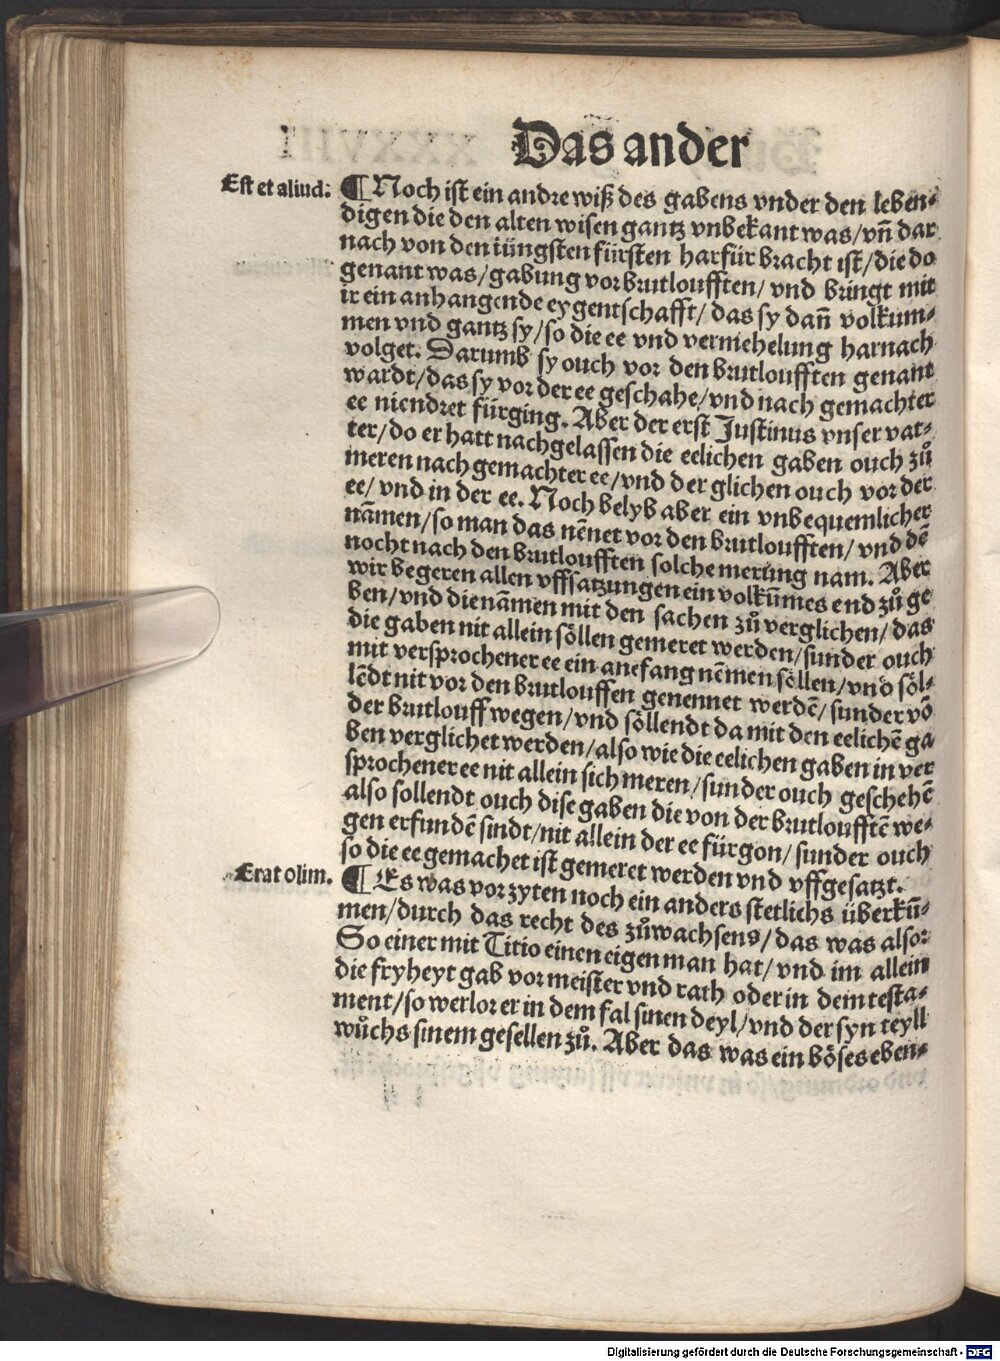 Das ander
Est et aliud:
¶ Noch ist ein andre wiß des gabens vnder den leben⸗
digen die den alten wisen gantz vnbekant was/vñ dar
nach von den iüngsten fürsten harfür bracht ist/die do
genant was/gabung vor brutloufften/ vnd bringt mit
ir ein anhangende eygentschafft/ das sy dañ volkum⸗
men vnd gantz sy/so die ee vnd vermehelung harnach
volget. Darumb sy ouch vor den brutloufften genant
wardt/das sy vor der ee geschahe/vnd nach gemachter
ee niendret fürging. Aber der erst Justinus vnser vat⸗
ter/do er hatt nachgelassen die eelichen gaben ouch zů
meren nach gemachter ee/vnd der glichen ouch vor der
ee/ vnd in der ee. Noch belyb aber ein vnbequemlicher
nāmen/so man das nēnet vor den brutloufften/ vnd dē
nocht nach den brutloufften solche merung nam. Aber
wir begeren allen vffsatzungen ein volkūmes end zů ge
ben/vnd die nāmen mit den sachen zů verglichen/ das
die gaben nit allein söllen gemeret werden/sunder ouch
mit versprochener ee ein anefang nēmen söllen/vnd söl⸗
lēdt nit vor den brutlouffen genennet werdē/ sunder vō
der brutlouff wegen/vnd söllendt da mit den eelichē ga
ben verglichet werden/also wie die eelichen gaben in ver
sprochener ee nit allein sich meren/sunder ouch geschehē
also sollendt ouch dise gaben die von der brutloufftē we⸗
gen erfundē sindt/nit allein der ee fürgon/ sunder ouch
so die ee gemachet ist gemeret werden vnd vffgesatzt.
Erat olim.
¶ Es was vor zyten noch ein anders stetlichs überkū⸗
men/durch das recht des zůwachsens/das was also:
So einer mit Titio einen eigen man hat/vnd im allein
die fryheyt gab vor meister vnd rath oder in dem testa⸗
ment/so werlor er in dem fal sinen deyl/vnd der syn teyll
wůchs sinem gesellen zů. Aber das was ein böses eben⸗
Digitalisierung gefördert durch die Deutsche Forschungsgemeinschaft - DFG